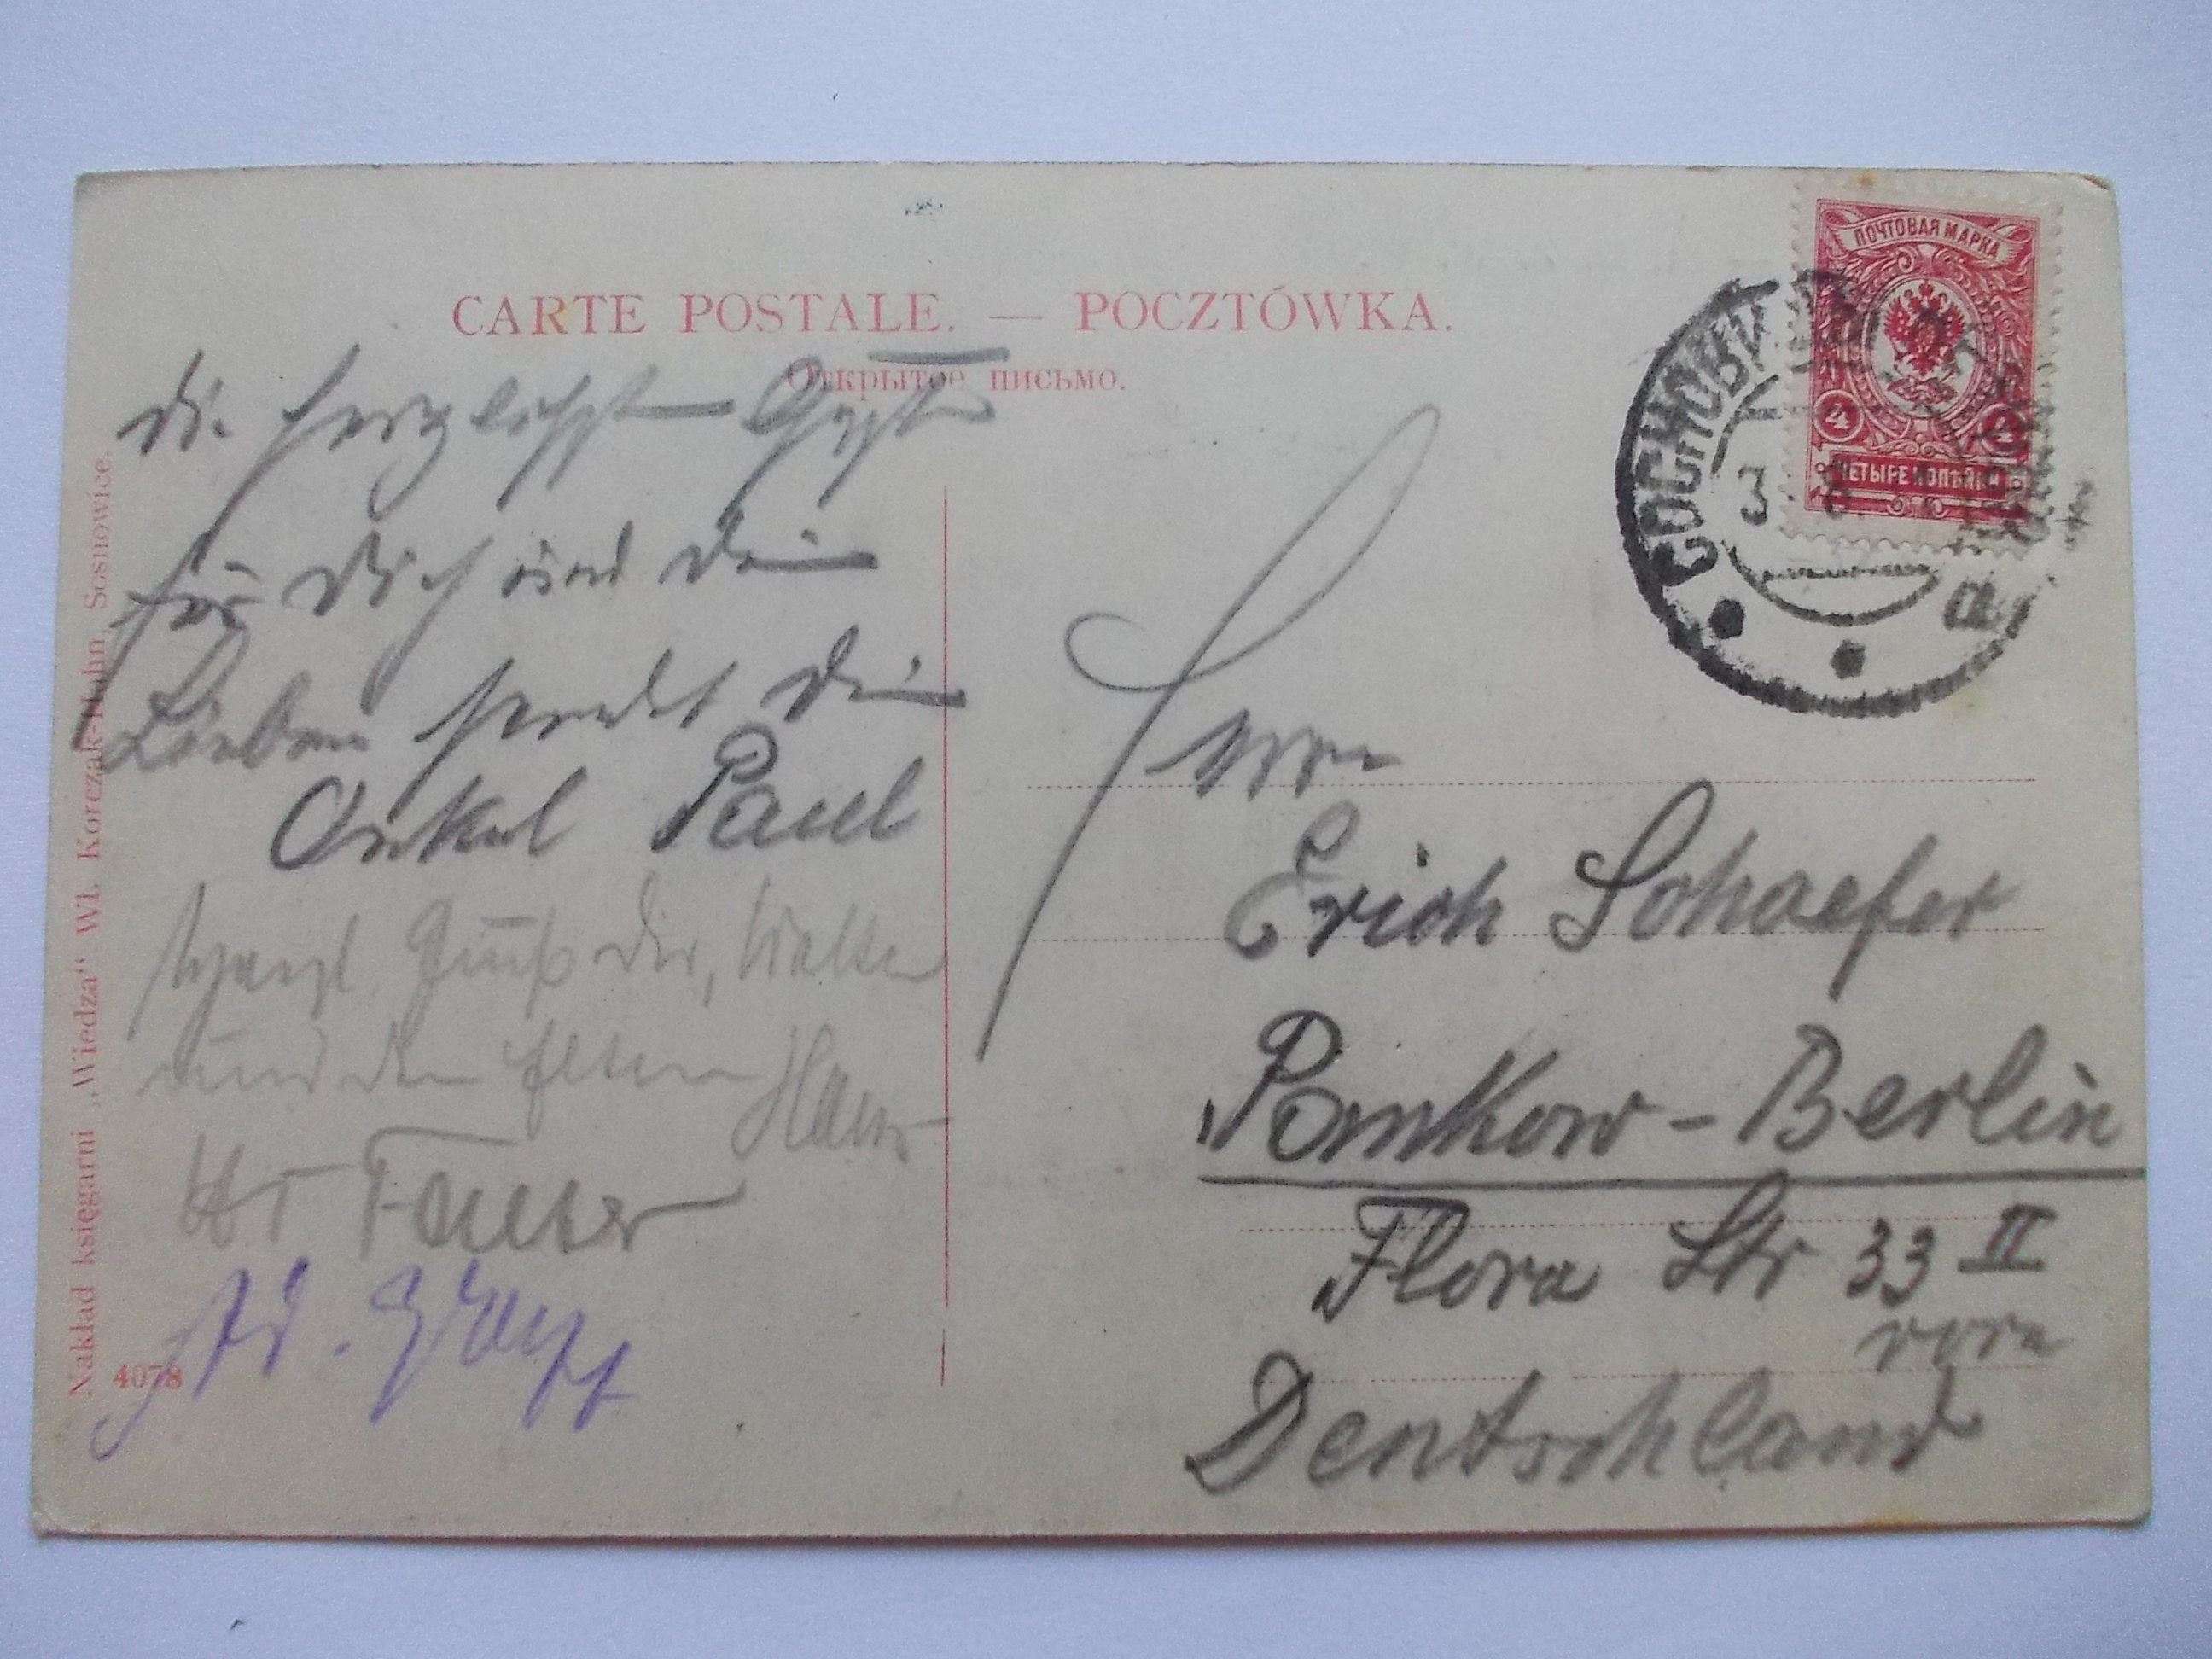 CARTE POSTALE. — POCZTÓWKA.
Открытое письмо.
ПОЧТОВАЯ МАРКА
4 4
ЧЕТЫРЕ КОПѢЙКИ
СОСНОВИЦЫ
3
a
Die herzlichsten Grüße
für Dich und Deine
Lieben sendet Dein
Onkel Paul
Herzl. Gruß Dir, Walter
und den Eltern Hans
Nakład księgarni „Wiedza“ Wł. Korczak-Hahn, Sosnowice.
4078
Herrn
Erich Schaefer
Pankow - Berlin
Flora Str 33 II
vorn
Deutschland